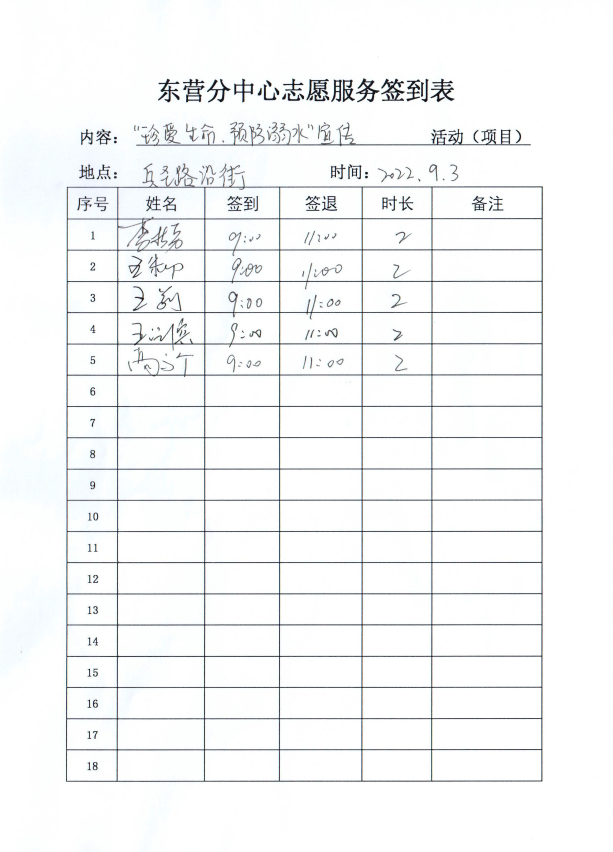 东营分中心志愿服务签到表
内容："珍爱生命、预防溺水"宣传 活动（项目）
地点：路沿街 时间：2022.9.3
序号 姓名 签到 签退 时长 备注
1 9:00 11:00 2
2 王 9:00 11:00 2
3 王莉 9:00 11:00 2
4 王 9:00 11:00 2
5 高 9:00 11:00 2
6
7
8
9
10
11
12
13
14
15
16
17
18